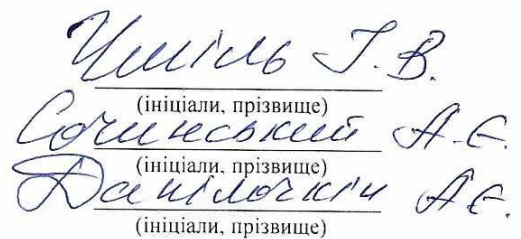 Чміль І. В.
(ініціали, прізвище)
Сочинський А. Є.
(ініціали, прізвище)
Данілочкін А. Є.
(ініціали, прізвище)